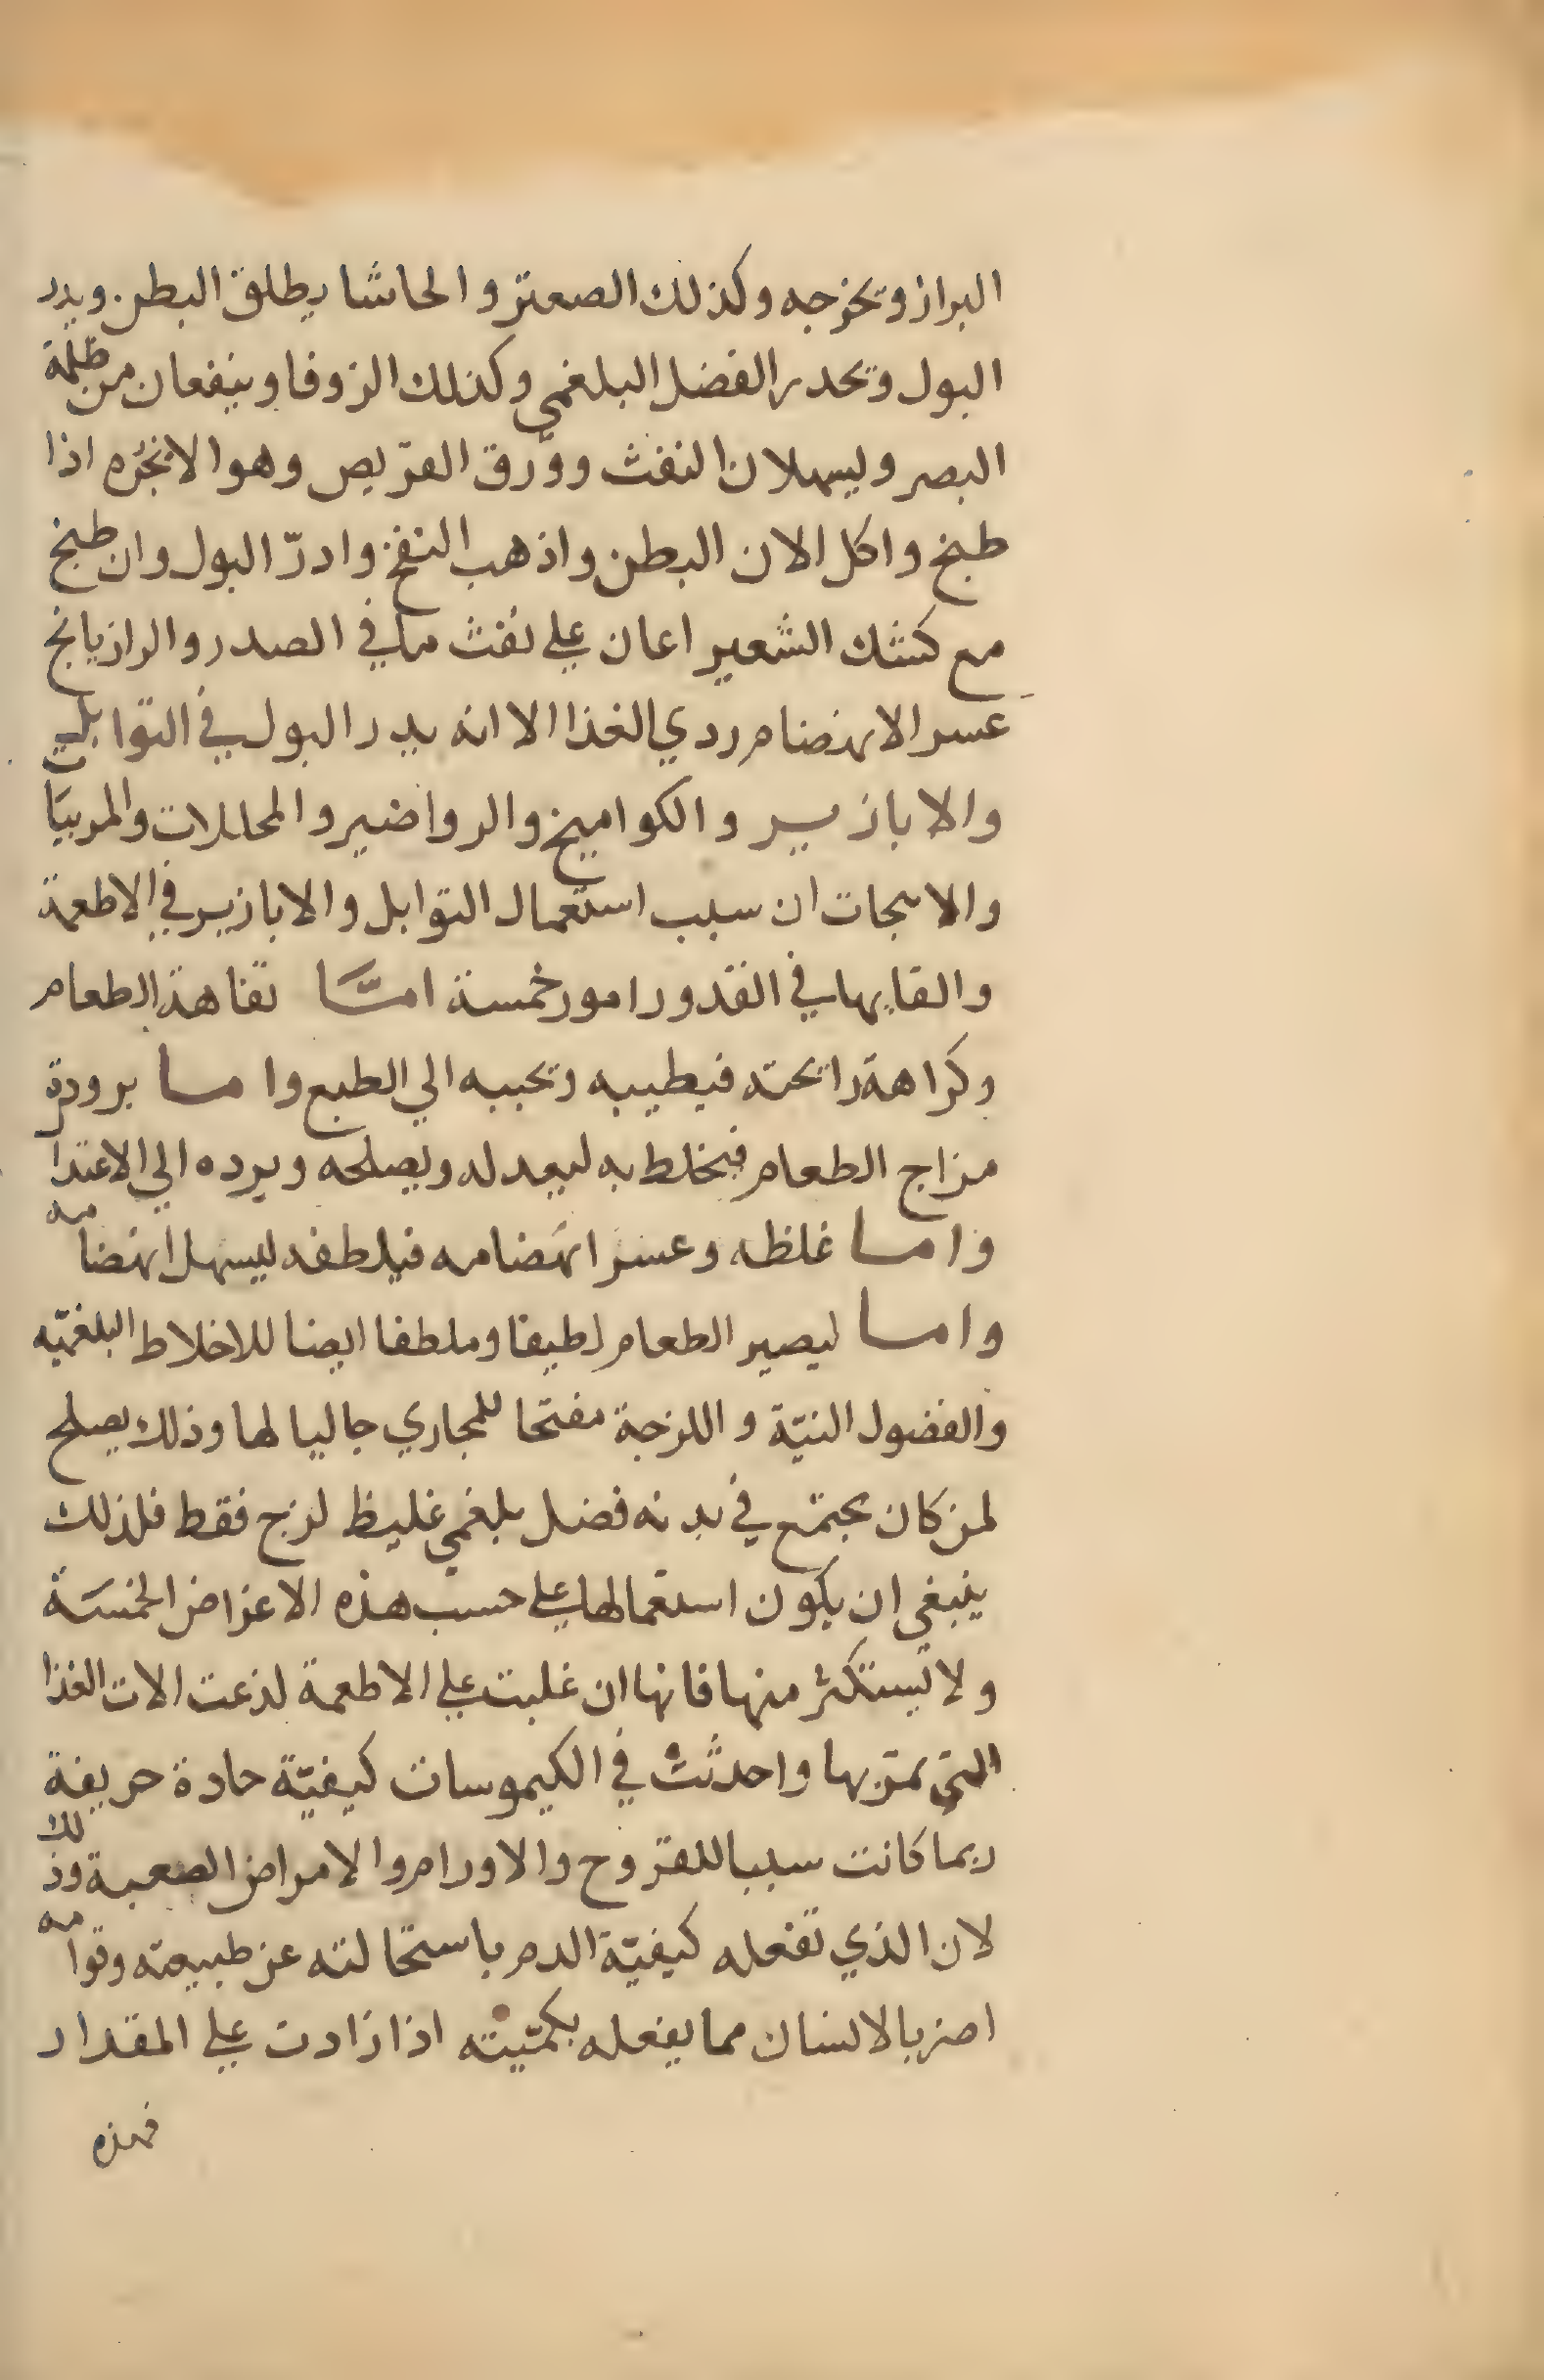 البراز ويخرجه وكذلك الصعتر والحاشا يطلق البطن ويدر
البول ويحدر الفضل البلغمي وكذلك الزوفا وينفعان من ظلمة
البصر ويسهلان النفث وورق القريص وهو الانجره اذا
طبخ واكل الان البطن واذهب النفخ وادرّ البول وان طبخ
مع كشك الشعير اعان علي نفث ما في الصدر والرازيانج
عسر الانهضام ردي الغذا الا انه يدر البول في التوابل
والابازير والكواميخ والرواضير والمخللات والمربيَا
والانبجات ان سبب استعمال التوابل والابازير في الاطعمة
والقايها في القدور امور خمسة امّا تفاهة الطعام
وكراهة رائحته فيطيبه ويحببه الي الطبع واما برودة
مزاج الطعام فيخلط به ليعدله ويصلحه ويرده الي الاعتدا
واما غلظه وعسر انهضامه فيلطفه ليسهل انهضامه
واما ليصير الطعام لطيفا وملطفا ايضا للاخلاط البلغميّه
والفضول النيّة واللزجة مفتحا للمجاري جاليا لها وذلك يصلح
لمن كان يجتمع في بدنه فضل بلغمي غليظ لزج فقط فلذلك
ينبغي ان يكون استعمالها علي حسب هذه الاغراض الخمسَة
ولا يستكثر منها فانها ان غلبت علي الاطعمة لذعت الات الغذا
التي تمرّ بها واحدثت في الكيموسات كيفيّة حادة حريفة
ربما كانت سببا للقروح والاورام والامراض الصعبة وذلك
لان الذي تفعله كيفيّة الدم باستحالته عن طبيعته وقوامه
اضر بالانسان مما يفعله بكميّته اذا زادت علي المقدار
فهذه